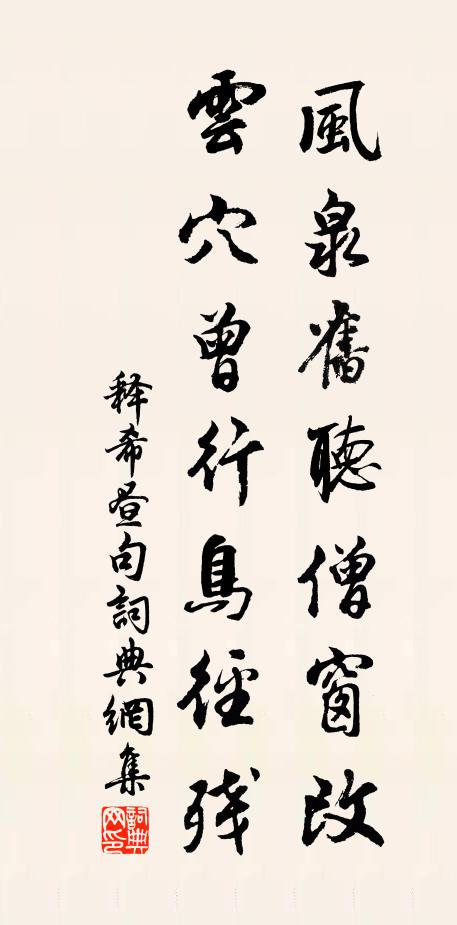 風泉舊聽僧窗改
雲穴曾行鳥徑殘
释希昼句詞典網集
詞典网印